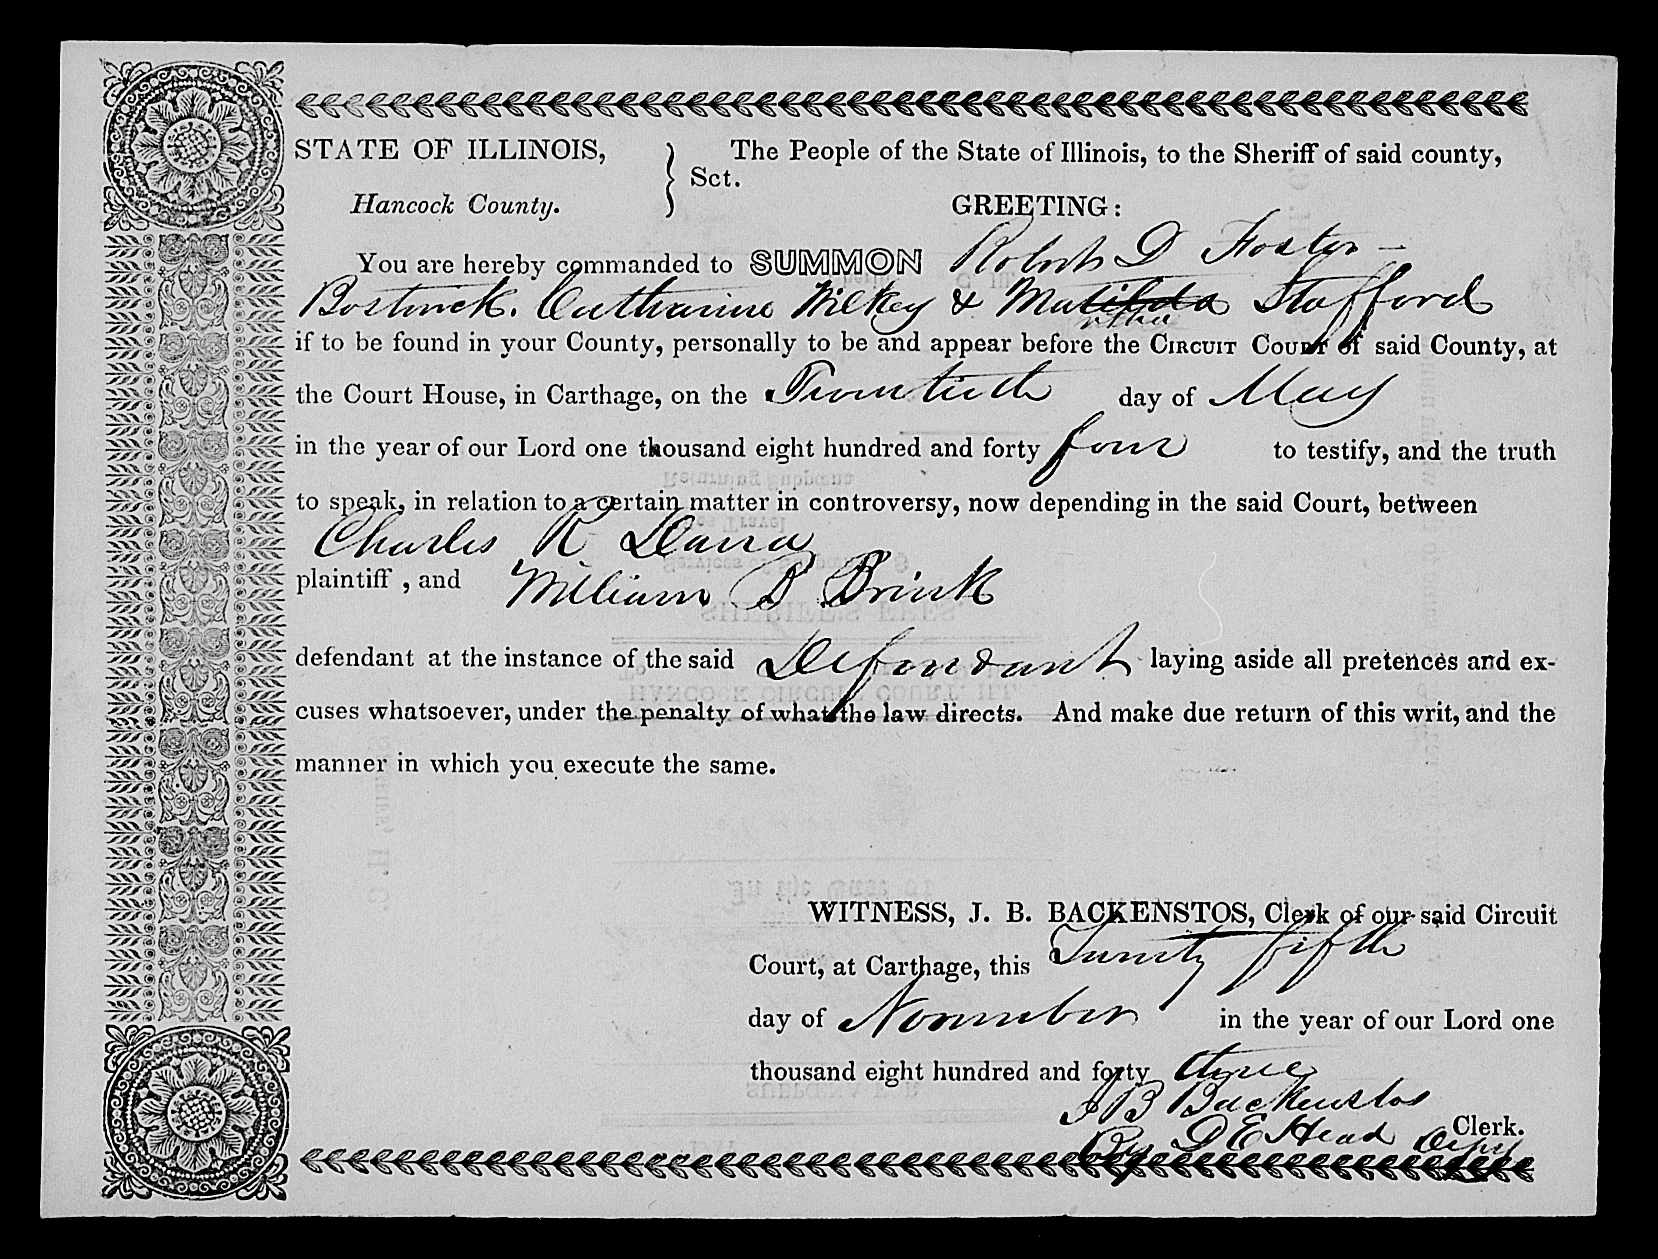 STATE OF ILLINOIS,
Hancock County.
} Sct.
The People of the State of Illinois, to the Sheriff of said county,
GREETING:
You are hereby commanded to SUMMON Robert D Foster –
Bostwick. Catharine Wilkey & Matilda Stafford
if to be found in your County, personally to be and appear before the CIRCUIT COURT of said County, at
the Court House, in Carthage, on the Twentieth day of May
in the year of our Lord one thousand eight hundred and forty four to testify, and the truth
to speak, in relation to a certain matter in controversy, now depending in the said Court, between
Charles R Dana
plaintiff , and William B Brink
defendant at the instance of the said Defendant laying aside all pretences and ex-
cuses whatsoever, under the penalty of what the law directs. And make due return of this writ, and the
manner in which you execute the same.
WITNESS, J. B. BACKENSTOS, Clerk of our said Circuit
Court, at Carthage, this Twenty fifth
day of November in the year of our Lord one
thousand eight hundred and forty three
J B Backenstos
Clerk.
By D E Head Depy